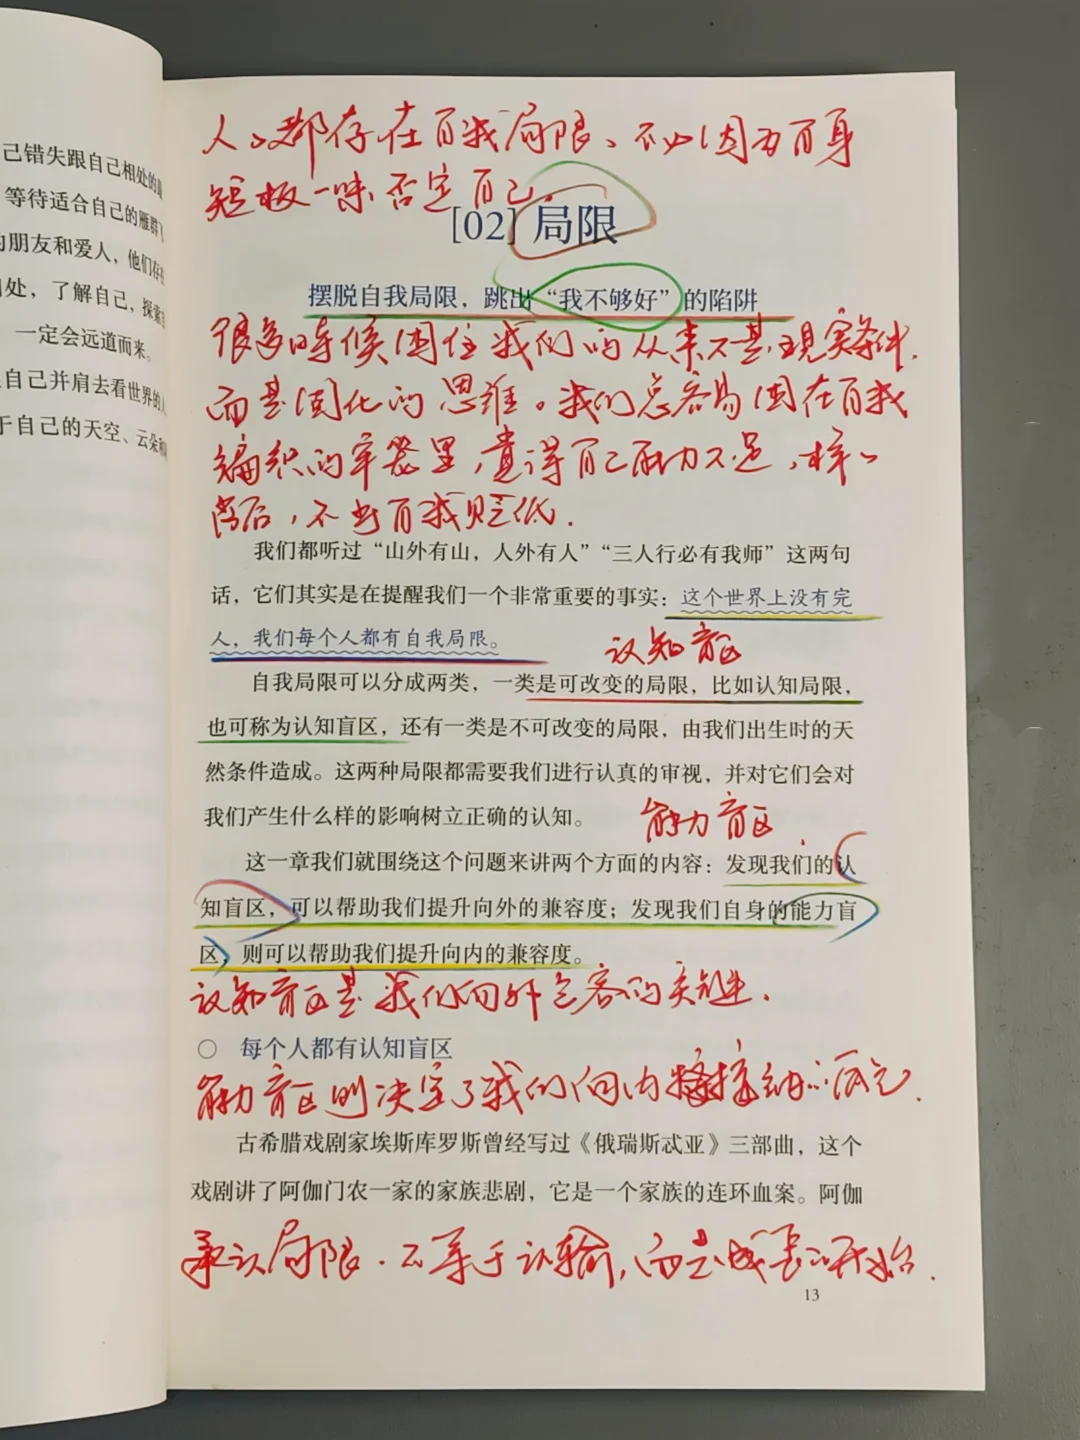 己错失跟自己相处的
等待适合自己的雁群飞
的朋友和爱人，他们存在
相处，了解自己，探索
一定会远道而来。
自己并肩去看世界的人
于自己的天空、云朵和
人人都存在自我局限、不必因为自身
短板一味否定自己。
[02] 局限
摆脱自我局限，跳出“我不够好”的陷阱
很多时候困住我们的从来不是现实条件.
而是固化的思维。我们总容易困在自我
编织的牢笼里，觉得自己能力不足，样样
落后，不断自我贬低.
我们都听过“山外有山，人外有人”“三人行必有我师”这两句
话，它们其实是在提醒我们一个非常重要的事实：这个世界上没有完
人，我们每个人都有自我局限。
认知盲区
自我局限可以分成两类，一类是可改变的局限，比如认知局限，
也可称为认知盲区，还有一类是不可改变的局限，由我们出生时的天
然条件造成。这两种局限都需要我们进行认真的审视，并对它们会对
我们产生什么样的影响树立正确的认知。
能力盲区.
这一章我们就围绕这个问题来讲两个方面的内容：发现我们的认
知盲区，可以帮助我们提升向外的兼容度；发现我们自身的能力盲
区，则可以帮助我们提升向内的兼容度。
认知盲区是我们向外包容的关键.
○ 每个人都有认知盲区
能力盲区则决定了我们向内接纳的底气.
古希腊戏剧家埃斯库罗斯曾经写过《俄瑞斯忒亚》三部曲，这个
戏剧讲了阿伽门农一家的家族悲剧，它是一个家族的连环血案。阿伽
承认局限.不等于认输，而是成长的开始.
13